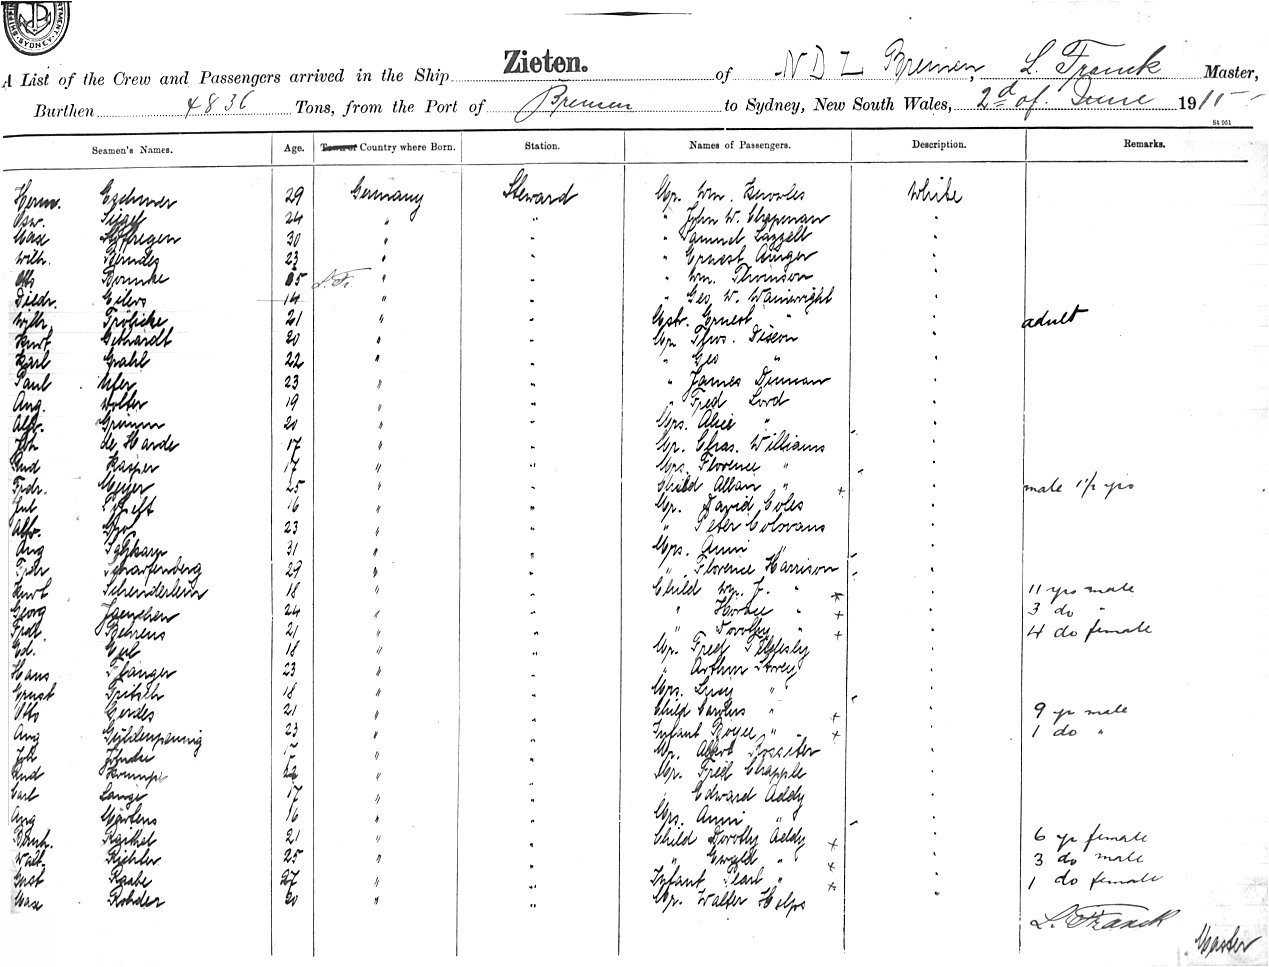 SYDNEY
Zieten.
A List of the Crew and Passengers arrived in the Ship Zieten. of N D L Bremen, L. Franck Master,
Burthen 4836 Tons, from the Port of Bremen to Sydney, New South Wales, 2d of June 1911
St 951
Seamen's Names. Age. Town or Country where Born. Station. Names of Passengers. Description. Remarks.
Herm. 29 Germany Steward Mr. Wm. Knowles White
Osw. 24 " " " John W. Chapman "
Max 30 " " " Samuel Lazzell "
Wilh. Gerndes 23 " " " Ernest Auger "
Otto 65 L. Fr. " " " Wm. Thomson "
Diedr. Eilers 14 " " " Geo. W. Wainwright "
Wilh. Frölicke 21 " " Mstr. Ernest " " adult
Kurt Gebhardt 20 " " Mr. Thos. Dixon "
Karl Grahl 22 " " " Geo " "
Paul Ufer 23 " " " James Dunnan "
Aug. Wolter 19 " " " Fred Lord "
Alb. Grimm 20 " " Mrs. Alice " "
Joh de Harde 17 " " Mr. Chas. Williams "
Gud Kasper 17 " " Mrs. Florence " "
Frdr. Meyer 25 " " Child Allan " + " male 1½ yrs
Jul 16 " " Mr. David Coles "
Alb. 23 " " " Peter Colovans "
Aug 31 " " Mrs. Anni " "
Frdr Scharfenberg 29 " " " Florence Harrison "
Kurt Schenderlein 18 " " Child Wm. J. " + " 11 yrs male
Georg Jaenchen 24 " " " Horace " + " 3 do "
Frdr. Behrens 21 " " " Dorothy " + " 4 do female
Ed. 18 " " Mr. Fred "
Hans Pfanger 23 " " " Arthur Storey "
Ernst Fritsch 18 " " Mrs. Lucy " "
Otto Gerdes 21 " " Child " + " 9 yr male
Aug Güldenpfennig 23 " " Infant Royce " + " 1 do "
Joh " " Mr. Albert Rossiter "
Gud Krumpe 22 " " Mr. Fred Chapple "
Carl Lange 17 " " " Edward Addy "
Aug Märtens 16 " " Mrs. Anni " "
Bernh. Raithel 21 " " Child Dorothy Addy + " 6 yr female
Walt. Richter 25 " " " Ewald " + " 3 do male
Gust Raabe 27 " " Infant Pearl " + " 1 do female
Max Rohder 20 " " Mr. Walter Helps "
L. Franck
Master